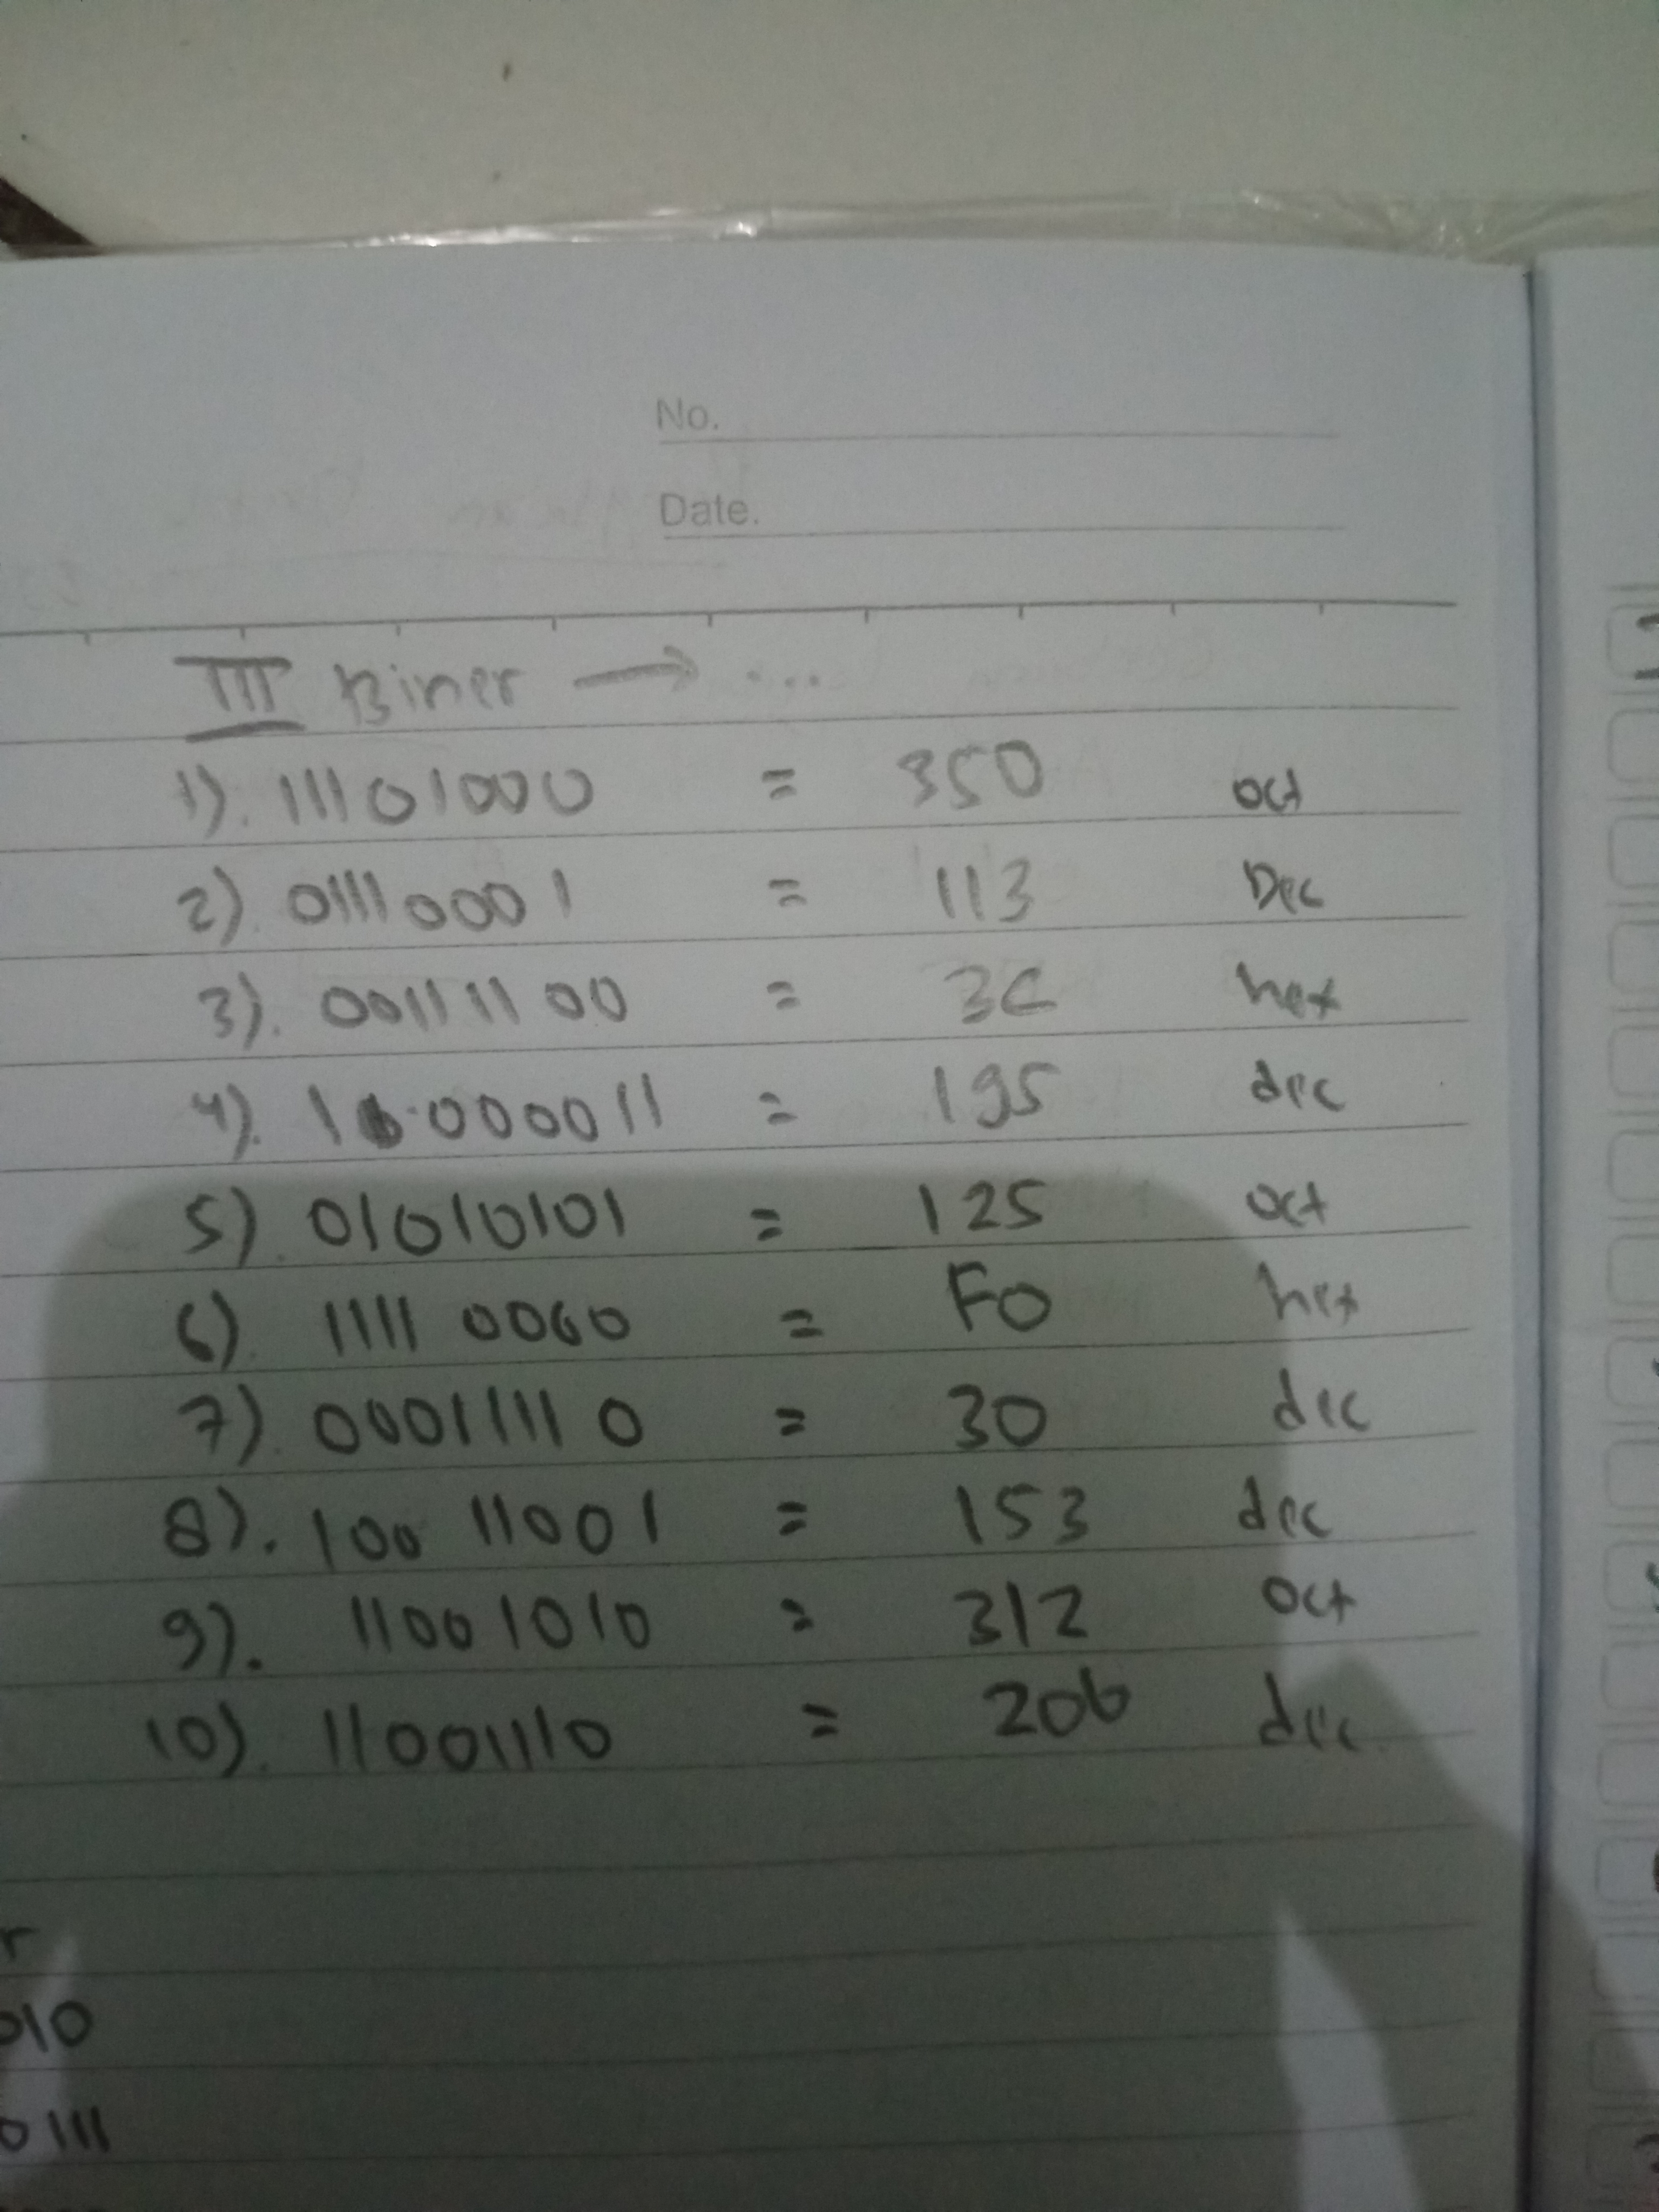 No.
Date.
III Biner → ...
1). 11101000 = 350 oct
2). 01110001 = 113 Dec
3). 00111100 = 3C hex
4). 11000011 = 195 dec
5). 01010101 = 125 oct
6). 1111 0000 = F0 hex
7). 00011110 = 30 dec
8). 100 11001 = 153 dec
9). 11001010 = 312 oct
10). 11001110 = 206 dec
r
010
0111